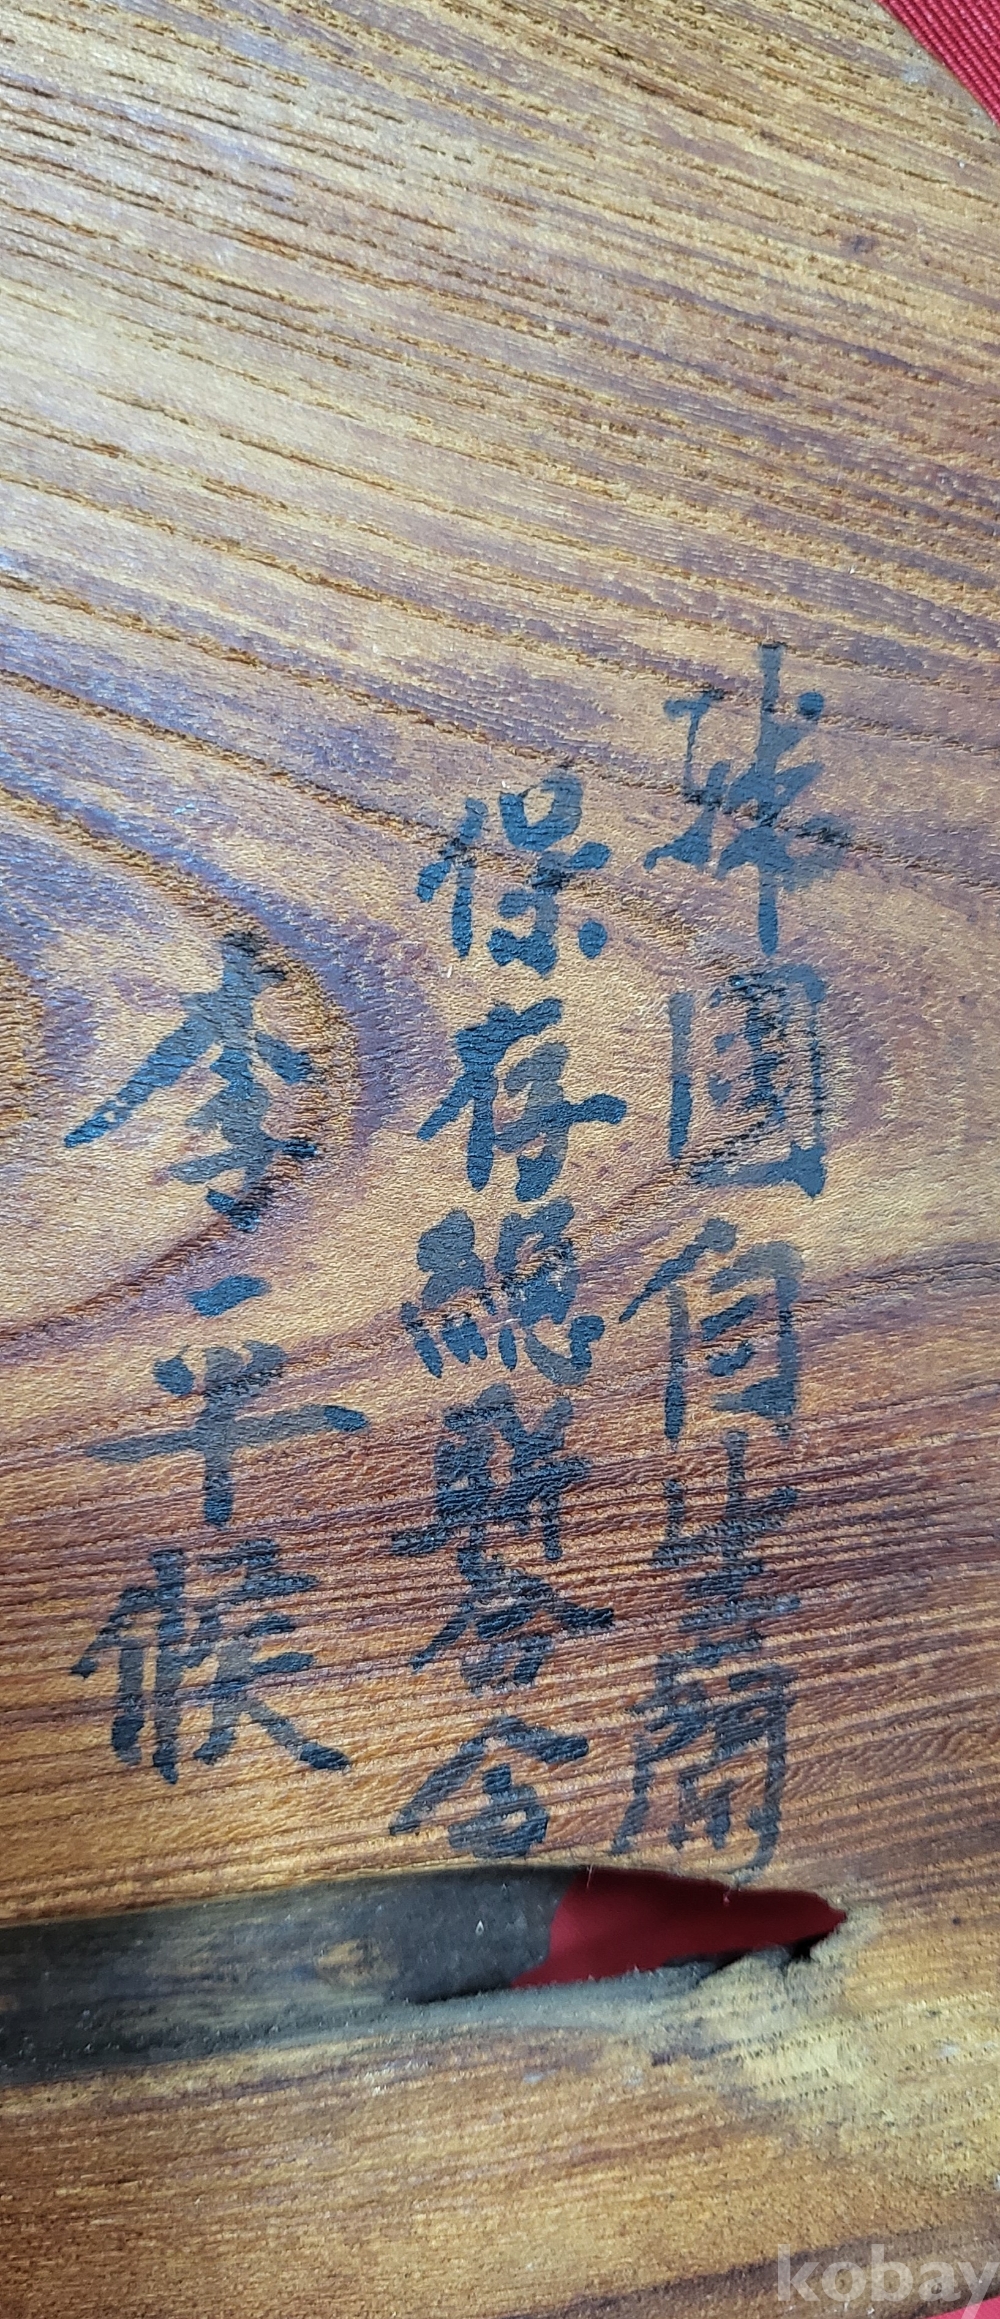 国自生蘭
保存總聯合会
李平候
kobay